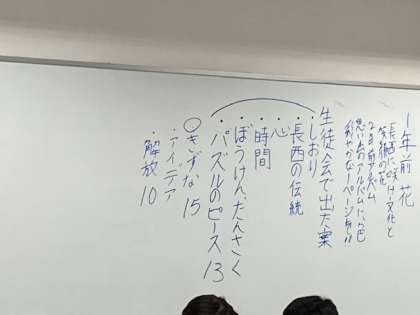 1年前 花
長西に咲け文化と
笑顔の花
2年前アルバム
思い出のアルバムに
彩やかな1ページを!!
生徒会で出た案
・しおり
・長西の伝統
・心
・時間
・ぼうけん、たんさく
・パズルのピース 13
○きずな 15
・アイデア
・解放 10